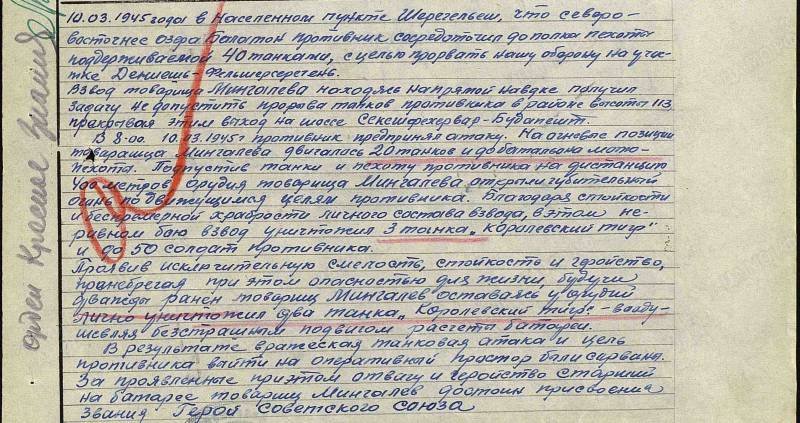 10.03.1945 года в населенном пункте Шерегельеш, что северо-
восточнее озера Болатон противник сосредоточил до полка пехоты
поддерживаемой 40 танками, с целью прорвать нашу оборону на участ-
ке Дениешь-Фельшерсеретень.
Взвод товарища Мингалева находясь на прямой наводке получил
задачу не допустить прорыва танков противника в районе высоты 113
прекрывая этим выход на шоссе Секешфехервар-Будапешт.
В 8.00. 10.03.1945 г противник предпринял атаку. На огневые позиции
товарища Мингалева двигалась 20 танков и до батальона мото-
пехота. Подпустив танки и пехоту противника на дистанцию
400 метров, орудия товарища Мингалева открыли губительный
огонь по движущимся целям противника. Благодаря стойкости
и беспримерной храбрости личного состава взвода, в этом не-
равном бою взвод уничтожил 3 танка „Королевский тигр"
и до 50 солдат противника.
Проявив исключительную смелость, стойкость и геройство,
пренебрегая при этом опасностью для жизни, будучи
дважды ранен товарищ Мингалев оставаясь у орудий
лично уничтожил два танка „Королевский тигр - вооду-
шевляя бесстрашным подвигом расчеты батареи.
В результате вражеская танковая атака и цель
противника выйти на оперативный простор были сорваны.
За проявленные при этом отвагу и геройство старший
на батарее товарищ Мингалев достоин присвоения
звания Герой Советского Союза
орден Красное Знамя